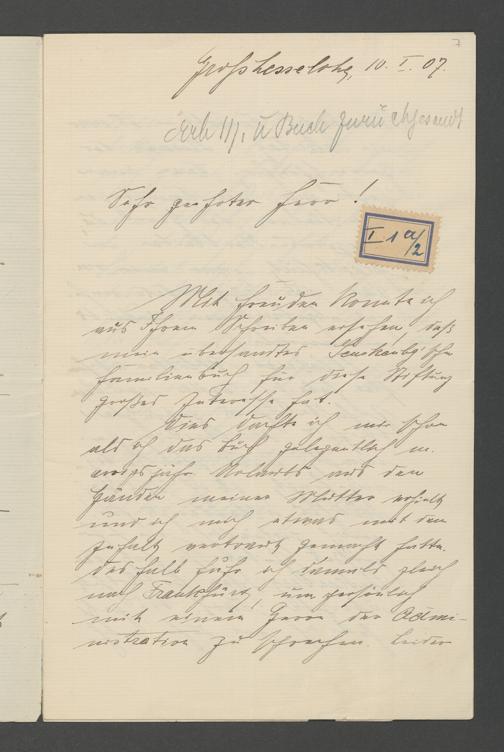 7
Großhesselohe, 10. I. 07.
Erh 11/1 u Buch zurückgesandt
Sehr geehrter Herr!
I 1 a/2
Mit Freuden konnte ich
aus Ihrem Schreiben ersehen, daß
mein übersandtes Senckenbg'sche
Familienbuch für diese Stiftung
großes Interesse hat.
Dies dachte ich mir schon
als ich das Buch gelegentlich m.
Urlaubs aus den
Händen meiner Mutter erhielt
und ich mich etwas mit dem
Inhalt vertraut gemacht hatte.
Deshalb fuhr ich damals gleich
nach Frankfurt, um persönlich
mit einem Herrn der Admi-
nistration zu sprechen. Leider